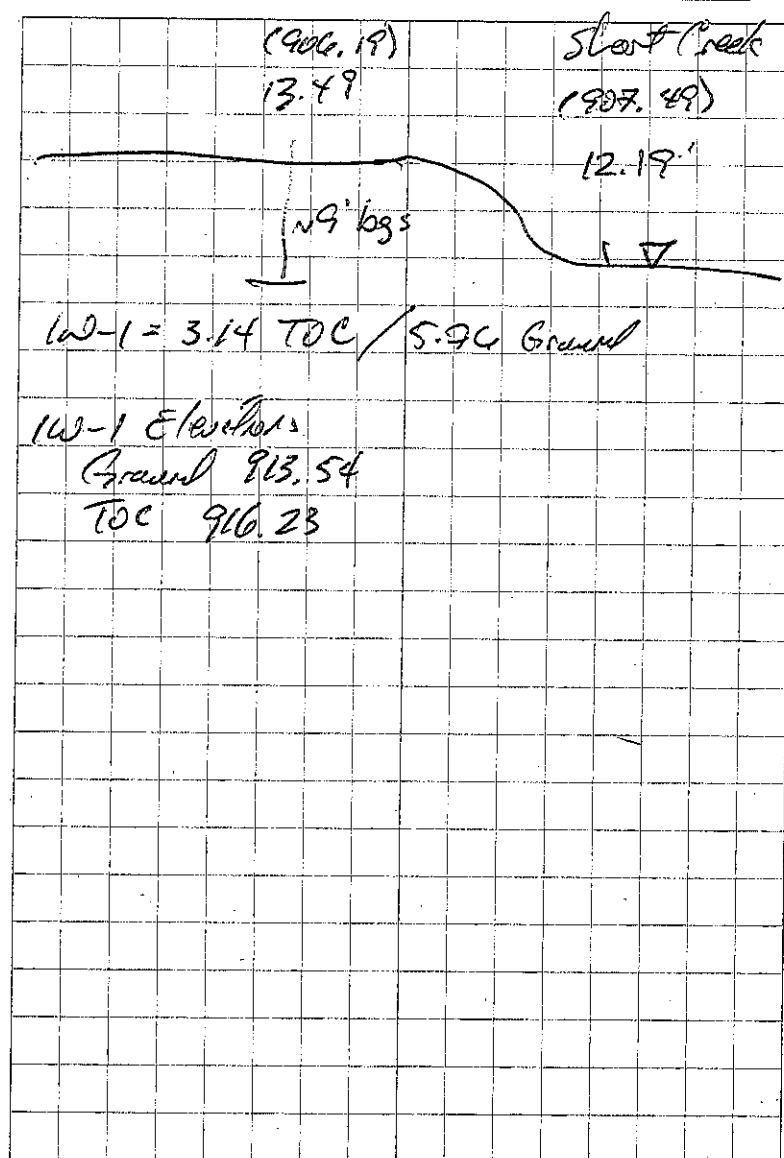 (906.19)
13.49
Short Creek
(907.49)
12.19'
~9' bgs
IW-1 = 3.14 TOC / Ground
IW-1 Elevations
Ground 913.54
TOC 916.23